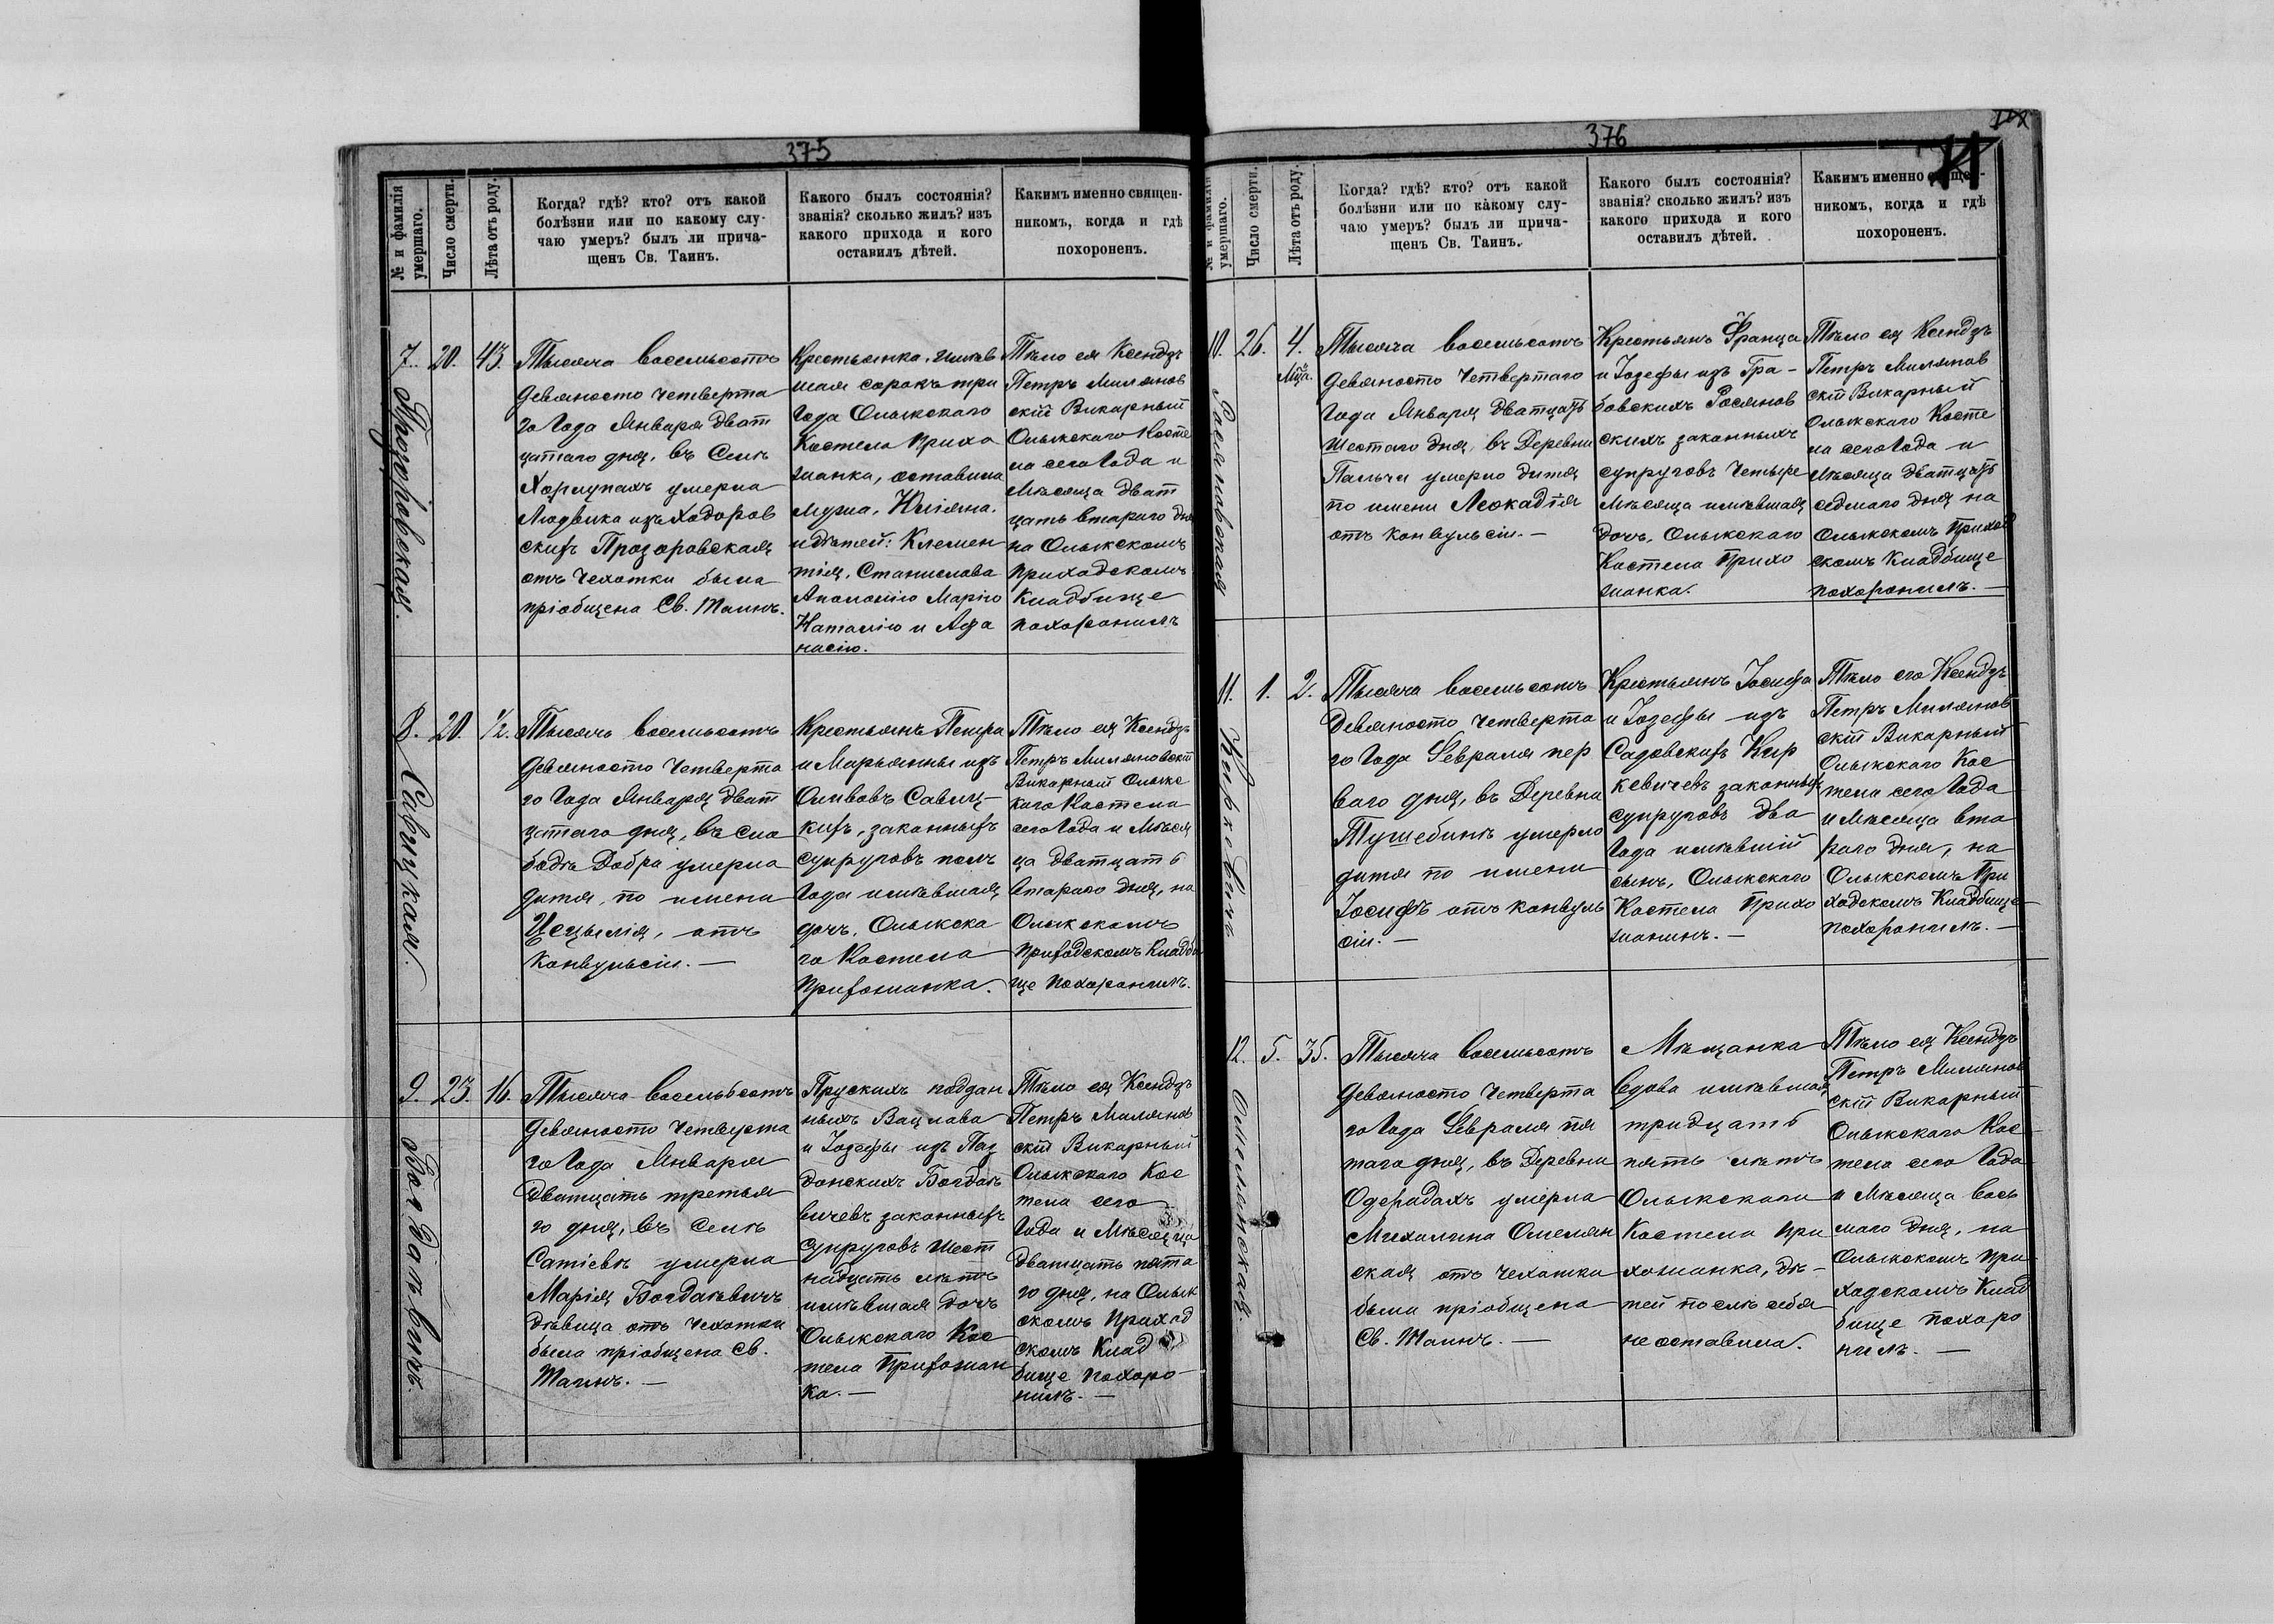 375
№ и фамилія умершаго.
Число смерти.
Лѣта отъ роду.
Когда? гдѣ? кто? отъ какой
болѣзни или по какому слу-
чаю умеръ? былъ ли прича-
щенъ Св. Таинъ.
Какого былъ состоянія?
званія? сколько жилъ? изъ
какого прихода и кого
оставилъ дѣтей.
Какимъ именно священ-
никомъ, когда и гдѣ
похороненъ.
7. Прозоровская.
20.
43.
Тысяча восемьсотъ
девяносто четверта
го Года Января дват
цатаго дня, въ Селѣ
Хорлупахъ умерла
Людвика изъ Ходоров
скихъ Прозоровская
отъ чехотки была
пріобщена Св. Таинъ.
Крестьянка, имѣв
шая сорокъ три
Года Олыкскаго
Костела прихо
жанка, оставила
мужа, Юліяна.
и дѣтей: Клемен
тія, Станислава
Аполонію Марію
Наталію и Афа
насію.
Тѣло ея Ксендзъ
Петръ Милянов
скій Викарный
Олыкскаго Косте
ла сего Года и
Мѣсяца Дват
цать втараго дня
на Олыкскомъ
приходскомъ
Кладбище
похоронилъ
8. Савицкая.
20.
1/2.
Тысячъ восемьсотъ
девяносто Четверта
го Года Января дват
цатаго дня, въ сло
бодѣ Добра умерла
дитя, по имени
Цецылія, отъ
Конвульсіи. —
Крестьянъ Петра
и Марьянны изъ
Оливовъ Савиц-
кихъ, законныхъ
супруговъ полъ
Года имѣвшая
дочъ, Олыкска
го Костела
прихожанка.
Тѣло ея Ксендзъ
Петръ Миляновскій
Викарный Олыкс
каго Костела
сего Года и Мѣся
ца дватцать
втараго дня, на
Олыкскомъ
приходскомъ Кладби
ще похоронилъ.
9. Богдакѣвичъ.
23.
16.
Тысяча восемьсотъ
девяносто Четверта
го Года Января
дватцать третья
го дня, въ Селѣ
Сатіевѣ умерла
Марія Богдакѣвичъ
дѣвица отъ чехотки
была пріобщена Св.
Таинъ. —
Прускихъ поддан
ныхъ Вацлава
и Іозефы изъ Паз
донскихъ Богдакѣ
вичевъ законныхъ
супруговъ Шест
надцать лѣтъ
имѣвшая Дочъ
Олыкскаго Кос
тела Прихожан
ка. —
Тѣло ея Ксендзъ
Петръ Милянов
скій Викарный
Олыкскаго Кос
тела сего
Года и Мѣсяца
дватцать пята
го дня, на Олык
скомъ приход
скомъ Клад
бище похоро-
нилъ. —
376
№ и фамилія умершаго.
Число смерти.
Лѣта отъ роду.
Когда? гдѣ? кто? отъ какой
болѣзни или по какому слу-
чаю умеръ? былъ ли прича-
щенъ Св. Таинъ.
Какого былъ состоянія?
званія? сколько жилъ? изъ
какого прихода и кого
оставилъ дѣтей.
Какимъ именно священ-
никомъ, когда и гдѣ
похороненъ.
10. Росяновская
26.
4.
Мца.
Тысяча восемьсотъ
девяносто Четвертаго
Года Января дватцать
шестаго дня, въ Деревни
Пальчи умерло дитя
по имени Леокадія
отъ конвульсіи. —
Крестьянъ Франца
и Іозефы изъ Гра-
бовскихъ Росянов
скихъ законныхъ
супруговъ Четыре
Мѣсяца имѣвшая
дочъ, Олыкскаго
Костела Прихо
жанка.
Тѣло ея Ксендзъ
Петръ Милянов
скій Викарный
Олыкскаго Косте
ла сего Года и
Мѣсяца дватцать
седмаго дня на
Олыкскомъ приход
скомъ Кладбище
похоронилъ. —
11. Киркевичъ
1.
2.
Тысяча восемьсотъ
Девяносто Четверта
го Года Февраля пер
ваго дня, въ Деревна
Тушебинѣ умерло
дитя по имени
Іосифъ отъ конвуль
сіи. —
Крестьянъ Іосифа
и Іозефы изъ
Садовскихъ Кир
кевичевъ законныхъ
супруговъ два
Года имѣвшій
сынъ, Олыкскаго
Костела Прихо
жанинъ. —
Тѣло его Ксендзъ
Петръ Милянов
скій Викарный
Олыкскаго Кос
тела сего Года
и Мѣсяца вта
раго дня, на
Олыкскомъ При
ходскомъ Кладбище
похоронилъ. —
12. Омелянская.
5.
35.
Тысяча восемьсотъ
девяносто Четверта
го Года Февраля пя
таго дня, въ Деревни
Одерадахъ умерла
Михалина Омелян
ская отъ чехотки
была пріобщена
Св. Таинъ. —
Мѣщанка
вдова имѣвшая
тридцать
пять лѣтъ
Олыкскаго
Костела при
хожанка, дѣ-
тей послѣ себя
не оставила.
Тѣло ея Ксендзъ
Петръ Милянов
скій Викарный
Олыкскаго Кос
тела сего Года
и Мѣсяца вось
маго дня, на
Олыкскомъ при
ходскомъ Клад
бище похоро
нилъ. —